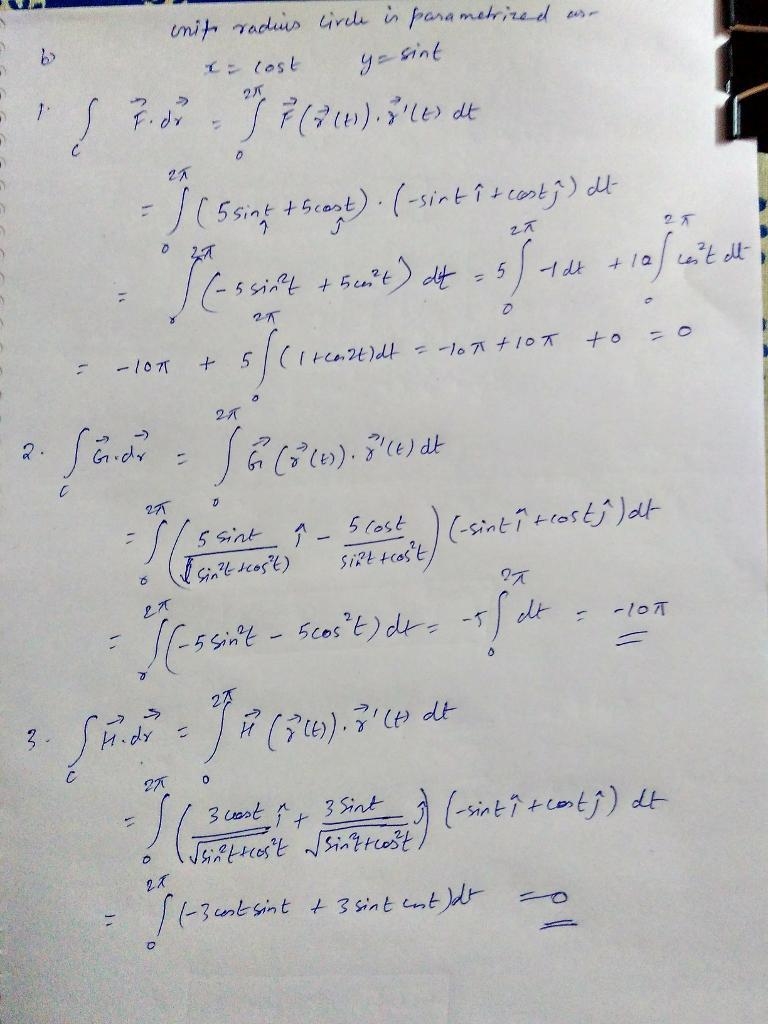 unit radius circle is parametrized as-
b) x = cost y = sint
1. ∫_C F⃗.dr⃗ = ∫_0^{2π} F⃗(r⃗(t)).r⃗'(t) dt
= ∫_0^{2π} (5sint î + 5cost ĵ).(-sint î + cost ĵ) dt
= ∫_0^{2π} (-5sin²t + 5cos²t) dt = 5∫_0^{2π} -1 dt + 10∫_0^{2π} cos²t dt
= -10π + 5∫_0^{2π} (1+cos2t)dt = -10π + 10π + 0 = 0
2. ∫_C G⃗.dr⃗ = ∫_0^{2π} G⃗(r⃗(t)).r⃗'(t) dt
= ∫_0^{2π} (5sint/(sin²t+cos²t) î - 5cost/(sin²t+cos²t)) (-sint î + cost ĵ)dt
= ∫_0^{2π} (-5sin²t - 5cos²t) dt = -5∫_0^{2π} dt = -10π
3. ∫_C H⃗.dr⃗ = ∫_0^{2π} H⃗(r⃗(t)).r⃗'(t) dt
= ∫_0^{2π} (3cost/√(sin²t+cos²t) î + 3sint/√(sin²t+cos²t) ĵ) (-sint î + cost ĵ) dt
= ∫_0^{2π} (-3cost sint + 3sint cost)dt = 0